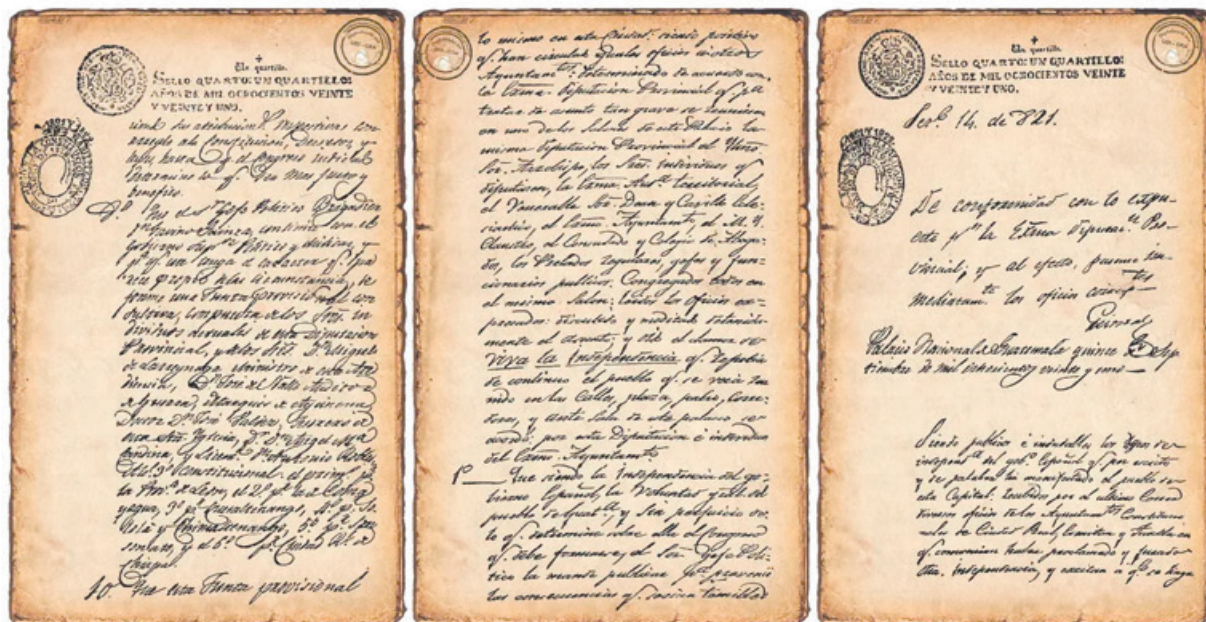 Un quartillo.
SELLO QUARTO: UN QUARTILLO:
AÑOS DE MIL OCHOCIENTOS VEINTE
Y VEINTE Y UNO.
arreglo a la Constitucion, Decretos y
Leyes, hasta q.e el Congreso indicado
determine lo q.e sea mas justo y
benefico.
8.º Que el S.r Gefe Politico Brigadier
D.n Gavino Gainza, continúe con el
Gobierno Sup.or Politico y Militar, y
p.a q.e este tenga el caracter q.e pa-
rece propio de las circunstancias, se
forme una Junta provisional con-
sultiva, compuesta de los Sres. in-
dividuos actuales de esta Diputacion
Provincial, y de los Sres. D.n Miguel
de Larreynaga Ministro de esta Au-
diencia, D. José del Valle Auditor
de Guerra, Marques de Aycinena,
Doctor D.n José Valdes, Tesorero de
esta Sta. Iglesia, D.r D.n Angel Ma.
Candina, y Licenc.do D.n Antonio Robles
Alc.e 3.º Constitucional: el prim.o p.r
la Prov.a de Leon, el 2.º p.r la de Comay-
agua, 3.º p.r Quesaltenango, 4.º p.r So-
lolá y Chimaltenango, 5.º p.r Son-
sonate, y el 6.º p.r Ciudad R.l de
Chiapa.
10. Que esta Junta provisional
lo mismo en esta Ciudad: siendo positivo
q.e han circulado iguales oficios a otros
Ayuntam.tos: determinado de acuerdo con
la Exma. Diputacion Provincial q.e p.a
tratar de asunto tan grave se reuniesen
en uno de los Salones de este Palacio la
misma Diputacion Provincial, el Yllmo.
Sor. Arzobispo, los Sres. individuos q.e
diputasen, la Exma. Aud.a Territorial,
el Venerable Sor. Dean y Cavildo Ecle-
siastico, el Exmo. Ayuntam.to, el M. Y.
Claustro, el Consulado y Colegio de Aboga-
dos, los Prelados regulares, gefes y fun-
cionarios publicos. Congregados todos en
el mismo Salon: leidos los oficios ex-
presados: discutido y meditado detenida-
mente el asunto; y oido el clamor de
Viva la Independencia q.e repetia
de continuo el pueblo q.e se veia reu-
nido en las Calles, plaza, patio, corre-
dores, y ante sala de este palacio, se
acordó: por esta Diputacion é individuos
del Exmo. Ayuntam.to
1.º Que siendo la Independencia del go-
bierno Español, la Voluntad gral. del
pueblo de Guat.a, y sin perjuicio de
lo q.e determine sobre ella el Congreso
q.e debe formarse, el Sor. Gefe Poli-
tico la mande publicar p.a prevenir
las consecuencias q.e serian temibles
Un quartillo.
SELLO QUARTO: UN QUARTILLO:
AÑOS DE MIL OCHOCIENTOS VEINTE
Y VEINTE Y UNO.
Sep.e 14. de 821.
De conformidad con lo expu-
esto p.r la Exma Diputac.n Pro-
vincial; y al efecto, pasense in-
mediatam.te los oficios corresp.tes
Palacio Nacional de Guatemala, quince de Sep-
tiembre de mil ochocientos veinte y uno.
Siendo publicos é indudables los deseos de
independ.a del gob.no Español q.e por escrito
y de palabra ha manifestado el pueblo de
esta Capital: recibidos por el ultimo Correo
diversos oficios de los Ayuntam.tos Constitucio-
nales de Ciudad Real, Comitan y Tuxtla en
q.e comunican haber proclamado y jurado
dha. independencia, y excitan a q.e se haga